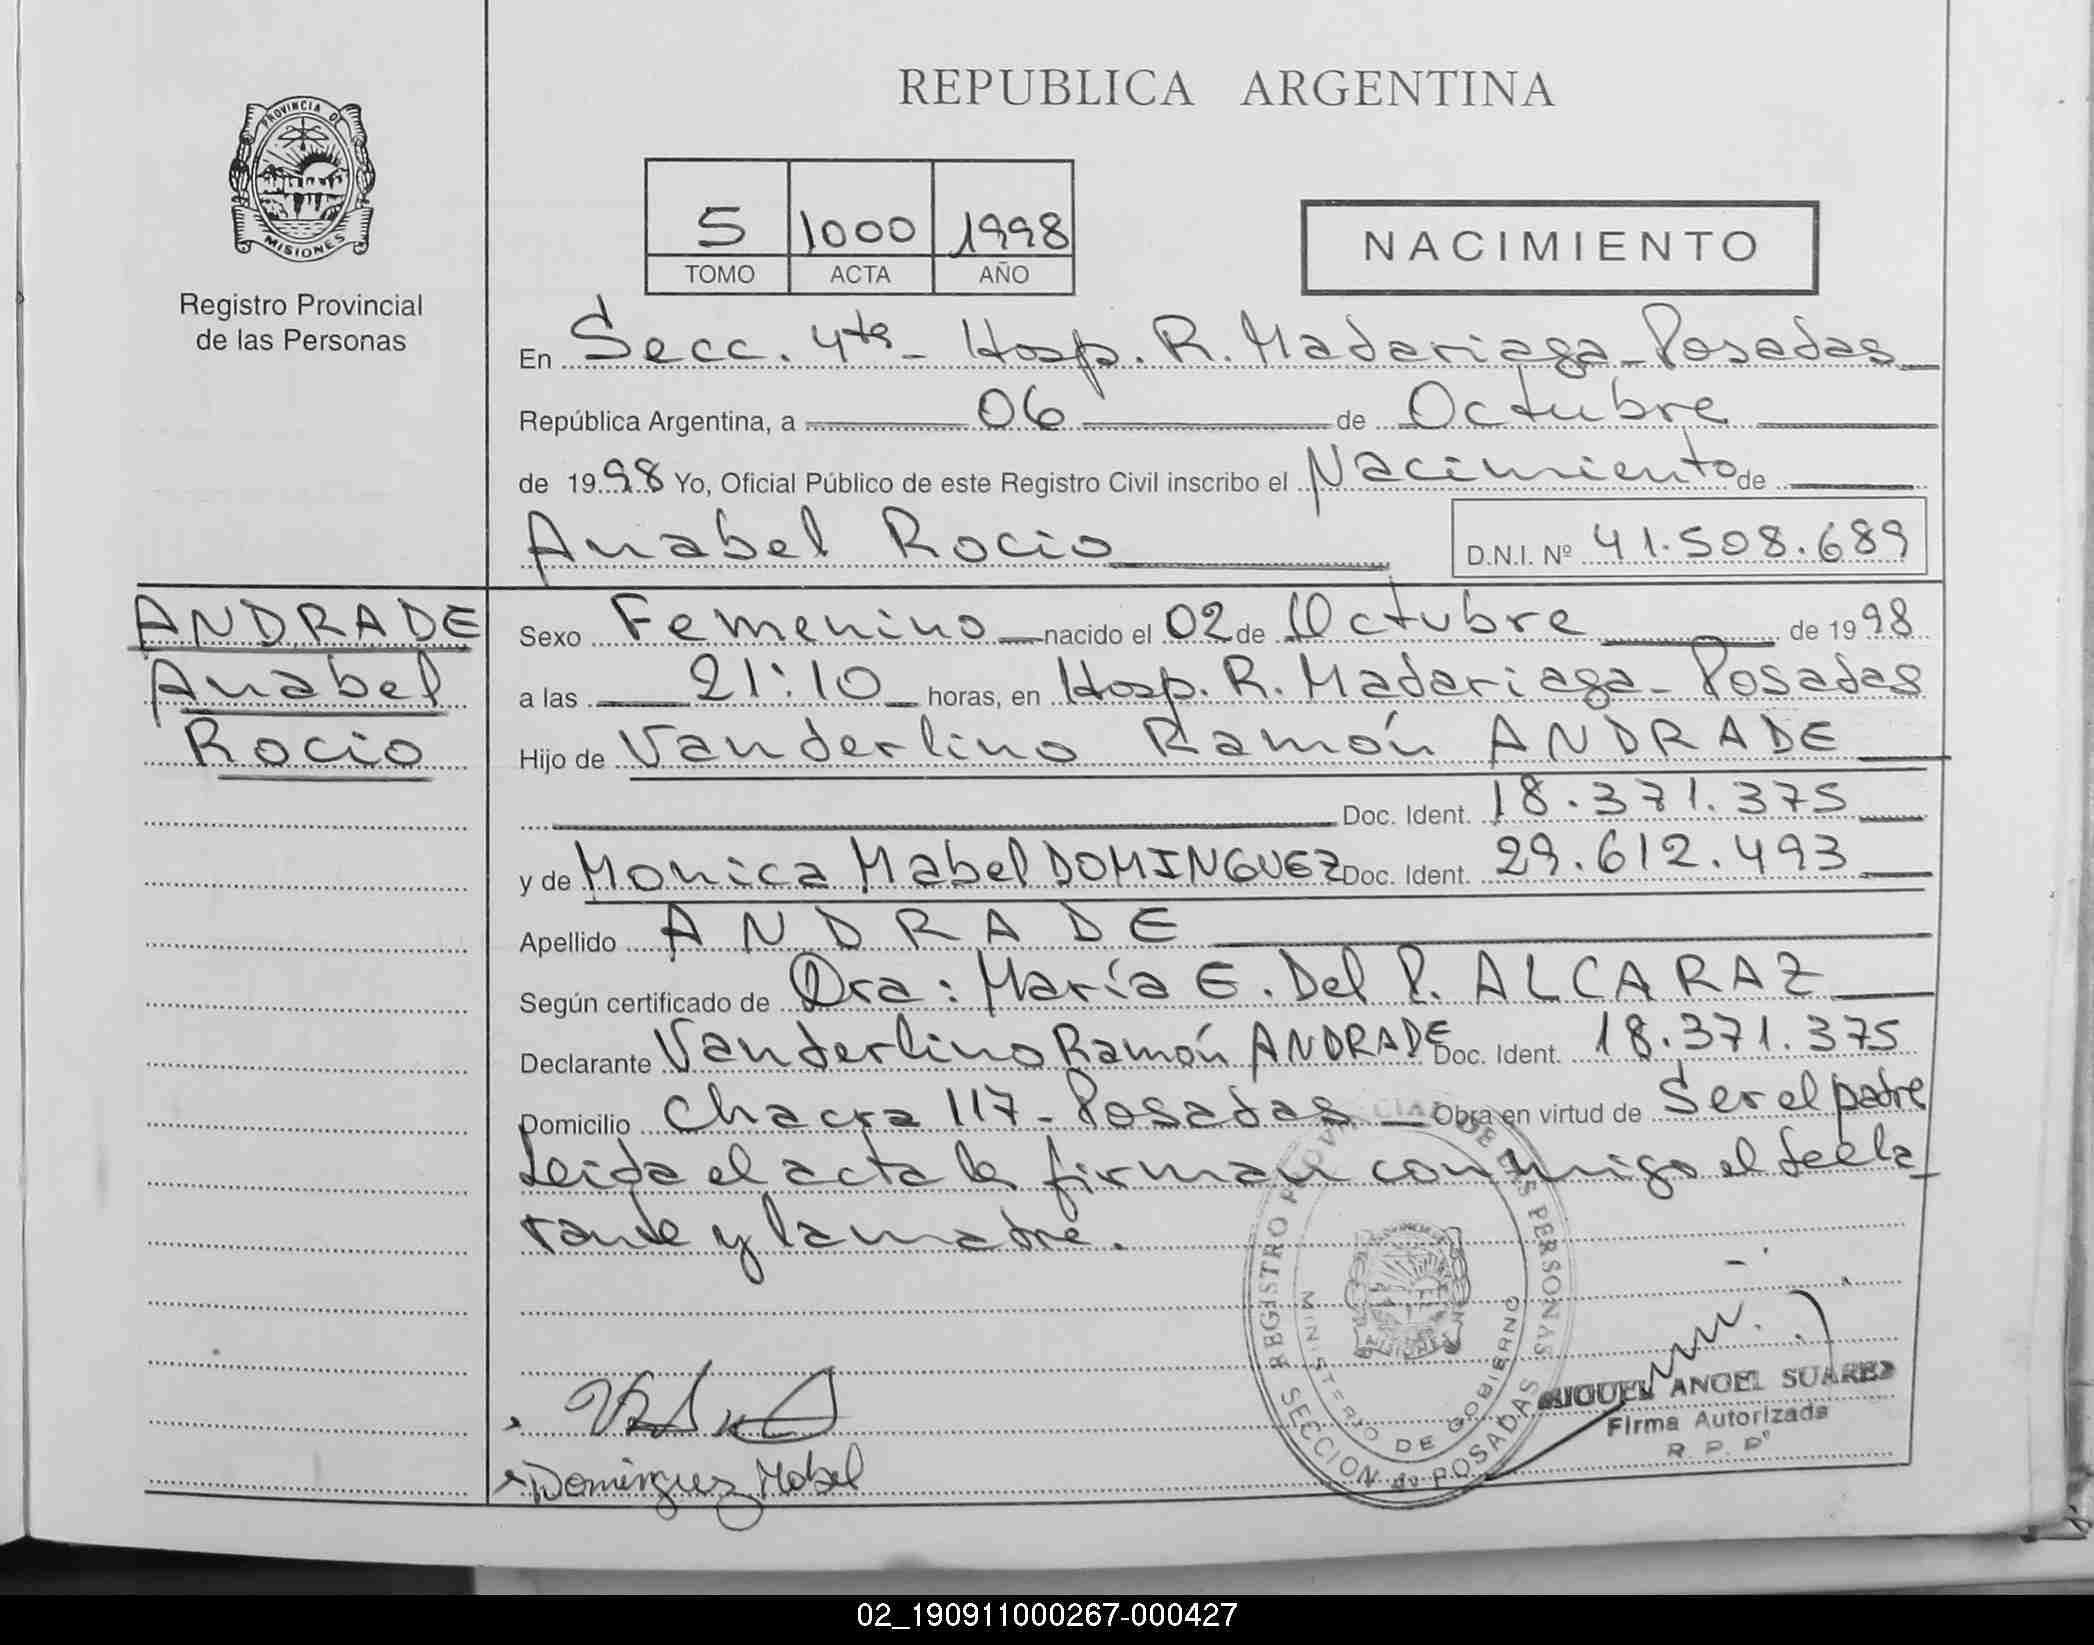 REPUBLICA ARGENTINA
PROVINCIA DE
MISIONES
Registro Provincial
de las Personas
5 1000 1998
TOMO ACTA AÑO
NACIMIENTO
En Secc. 4ta - Hosp. R. Madariaga - Posadas
República Argentina, a 06 de Octubre
de 1998 Yo, Oficial Público de este Registro Civil inscribo el Nacimiento de
Anabel Rocio D.N.I. Nº 41.508.689
ANDRADE
Anabel
Rocio
Sexo Femenino nacido el 02 de Octubre de 1998
a las 21:10 horas, en Hosp. R. Madariaga - Posadas
Hijo de Vanderlino Ramón ANDRADE
Doc. Ident. 18.371.375
y de Monica Mabel DOMINGUEZ Doc. Ident. 29.612.493
Apellido ANDRADE
Según certificado de Dra: María E. Del P. ALCARAZ
Declarante Vanderlino Ramón ANDRADE Doc. Ident. 18.371.375
Domicilio Chacra 117 - Posadas Obra en virtud de Ser el padre
Leida el acta la firman conmigo el decla-
rante y la madre.
REGISTRO PROVINCIAL DE LAS PERSONAS
MINISTERIO DE GOBIERNO
SECCION 4ª POSADAS
MIGUEL ANGEL SUAREZ
Firma Autorizada
R. P. P.
Dominguez Mabel
02_190911000267-000427